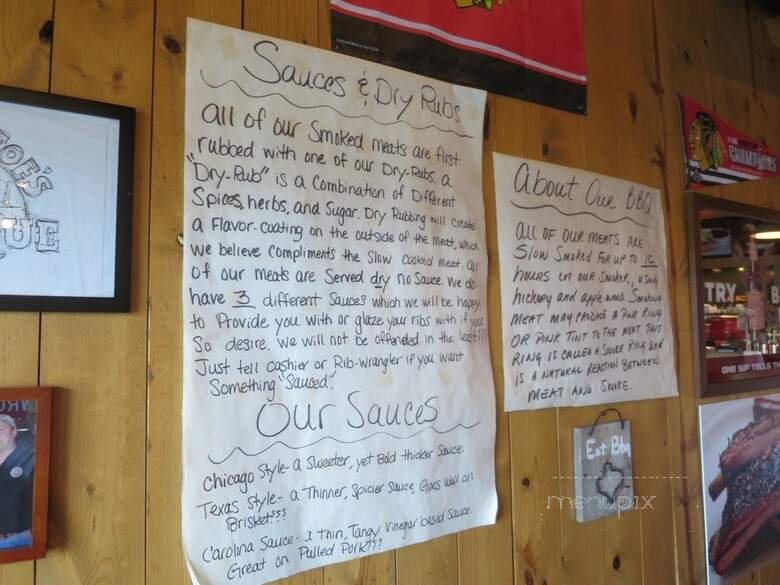 Sauces & Dry Rubs
All of our Smoked meats are first
rubbed with one of our Dry-Rubs. a
"Dry-Rub" is a Combination of Different
Spices, herbs, and Sugar. Dry Rubbing will create
a Flavor-coating on the outside of the meat, which
we believe Compliments the Slow cooked meat. all
of our meats are Served dry no Sauce. We do
have 3 different Sauces which we will be happy
to Provide you with or glaze your ribs with if you
So desire. We will not be offended in the least!!!
Just tell cashier or Rib-wrangler if you want
Something "Sauced".
Our Sauces
Chicago Style- a Sweeter, yet Bold thicker Sauce.
Texas Style- a Thinner, Spicier Sauce, Goes well on
Brisket!!!
Carolina Sauce- a thin, Tangy Vinegar based Sauce.
Great on Pulled Pork!!!
About Our BBQ
All of our meats are
Slow Smoked for up to 12
hours in our Smoker, using
hickory and apple wood. Smoking
meat may produce a pink ring
or pink tint to the meat. This
ring is called a smoke ring and
is a natural reaction between
meat and smoke.
Eat BBQ
OE'S
UE
CHAMPIONS
TRY
ONE SIP TELLS
menupix